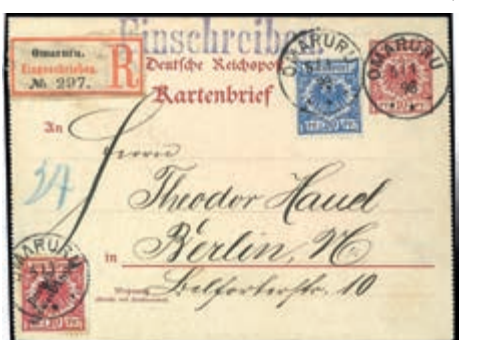 Einschreiben.
Omaruru.
Eingeschrieben.
No 297.
R
Deutsche Reichspost
Kartenbrief
OMARURU
OMARURU
An
Herrn
Theodor Haud
OMARURU
in Berlin, N
Belforterstr. 10